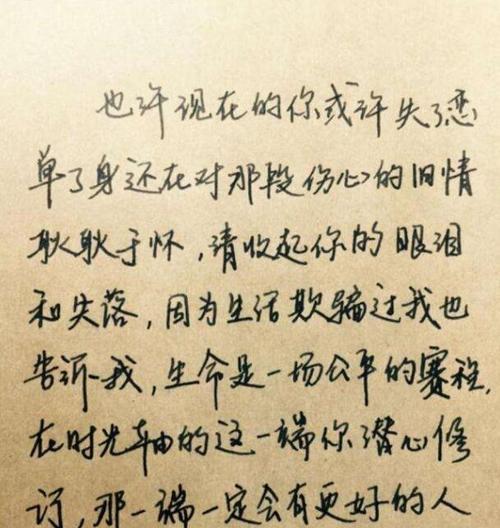 也许现在的你或许失了恋
单了身还在对那段伤心的旧情
耿耿于怀,请收起你的眼泪
和失落,因为生活欺骗过我也
告诉我,生命是一场公平的赛程,
在时光轴的这一端你潜心修
订,那一端一定会有更好的人